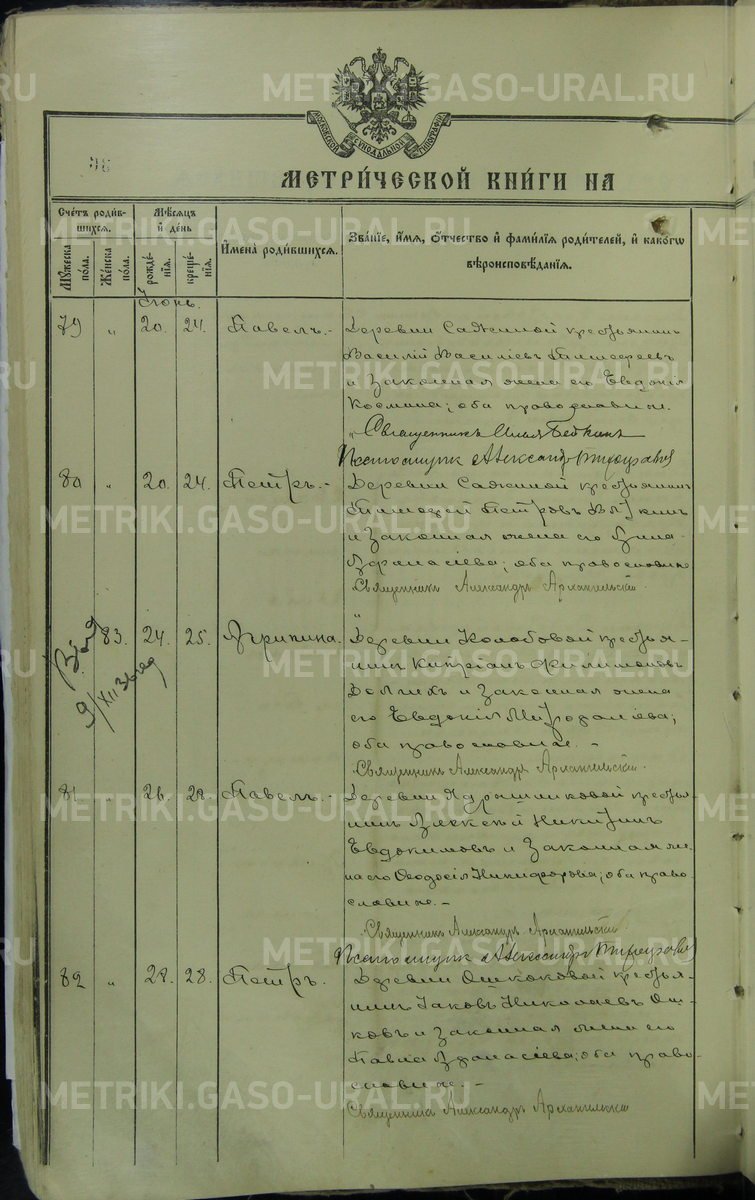 METRIKI.GASO-URAL.RU
МОСКОВСКОЙ СѴНОДАЛЬНОЙ ТИПОГРАФІИ
МЕТРИ́ЧЕСКОЙ КНИ́ГИ НА
Сче́тъ роди́в-
шихся.
Мꙋ́жеска
по́ла.
Же́нска
по́ла.
Мѣ́сяцъ
и҆ де́нь
рожде́-
нїѧ.
креще́-
нїѧ.
И҆мена̀ роди́вшихсѧ.
Зва́нїе, и҆́мѧ, ѻ҆́тчество и҆ фами́лїѧ роди́телей, и҆ како́гѡ
вѣроисповѣ́данїѧ.
Іюнь.
79 " 20. 24. Павелъ. - Деревни Саженной крестьянинъ
Василій Василіевъ Тимофеевъ
и законная жена его Евдокія
Космина; оба православные.
Священникъ
Псаломщик Александр
80 " 20. 24. Петръ. - Деревни Саженной крестьянинъ
Тимофей Петровъ
и законная жена его Анна
Афанасіева; оба православные
Священникъ Александръ Архангельскій
" 83. 24. 25. Агрипина. Деревни Колобовой крестья-
нинъ Кипріанъ Филимоновъ
Долгихъ и законная жена
его Евдокія
оба православные. -
Священникъ Александръ Архангельскій
9/XII 36 год
81. " 26. 28. Павелъ. - Деревни крестья-
нинъ Алексѣй Никитинъ
Евдокимовъ и законная же-
на его Ѳеодосія Никифорова; оба право-
славные. -
Священникъ Александръ Архангельскій
Псаломщик Александр
82 " 28. 28. Петръ. Деревни крестья-
нинъ Іаковъ Николаевъ
и законная жена его
Павла Афанасіева; оба право-
славные. -
Священникъ Александръ Архангельскій